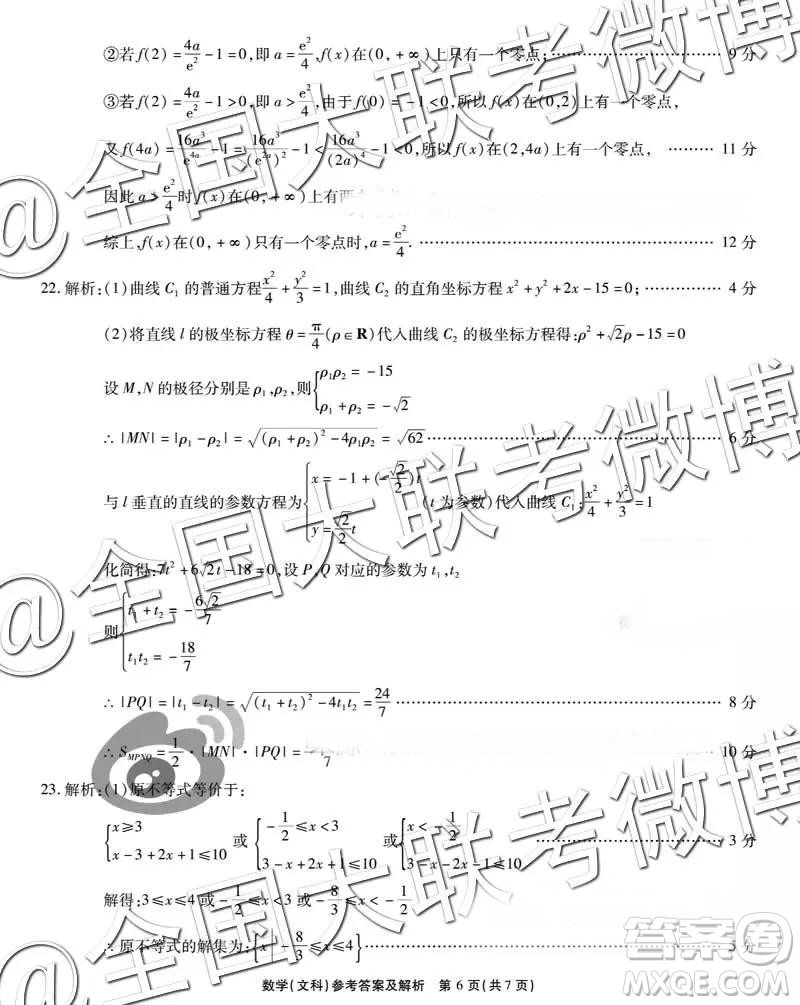 ②若f(2)=4a/e²-1=0,即a=e²/4,f(x)在(0,+∞)上只有一个零点;……9分
③若f(2)=4a/e²-1>0,即a>e²/4,由于f(0)=-1<0,所以f(x)在(0,2)上有一个零点,
又f(4a)=16a³/e^{4a}-1=16a³/(e^{2a})²-1<16a³/(2a)⁴-1<0,所以f(x)在(2,4a)上有一个零点,………11分
因此a>e²/4时f(x)在(0,+∞)上有两
综上,f(x)在(0,+∞)只有一个零点时,a=e²/4.……12分
22.解析:(1)曲线C₁的普通方程x²/4+y²/3=1,曲线C₂的直角坐标方程x²+y²+2x-15=0;……4分
(2)将直线l的极坐标方程θ=π/4(ρ∈R)代入曲线C₂的极坐标方程得:ρ²+√2ρ-15=0
设M,N的极径分别是ρ₁,ρ₂,则{ρ₁ρ₂=-15
ρ₁+ρ₂=-√2
∴|MN|=|ρ₁-ρ₂|=√((ρ₁+ρ₂)²-4ρ₁ρ₂)=√62……6分
与l垂直的直线的参数方程为{x=-1+(-√2/2)t
y=√2/2 t
(t为参数)代入曲线C₁:x²/4+y²/3=1
化简得:7t²+6√2t-18=0,设P,Q对应的参数为t₁,t₂
则{t₁+t₂=-6√2/7
t₁t₂=-18/7
∴|PQ|=|t₁-t₂|=√((t₁+t₂)²-4t₁t₂)=24/7……8分
∴S_{MPNQ}=1/2·|MN|·|PQ|= /7……10分
23.解析:(1)原不等式等价于:
{x≥3
x-3+2x+1≤10
或{-1/2≤x<3
3-x+2x+1≤10
或{x<-1/2
3-x-2x-1≤10
……3分
解得:3≤x≤4或-1/2≤x<3或-8/3≤x<-1/2
∴原不等式的解集为:{x|-8/3≤x≤4}……5分
数学(文科)参考答案及解析 第6页(共7页)
@全国大联考微博
@全国大联考微博
@全国大联考微博
答案卷
MXQE.COM